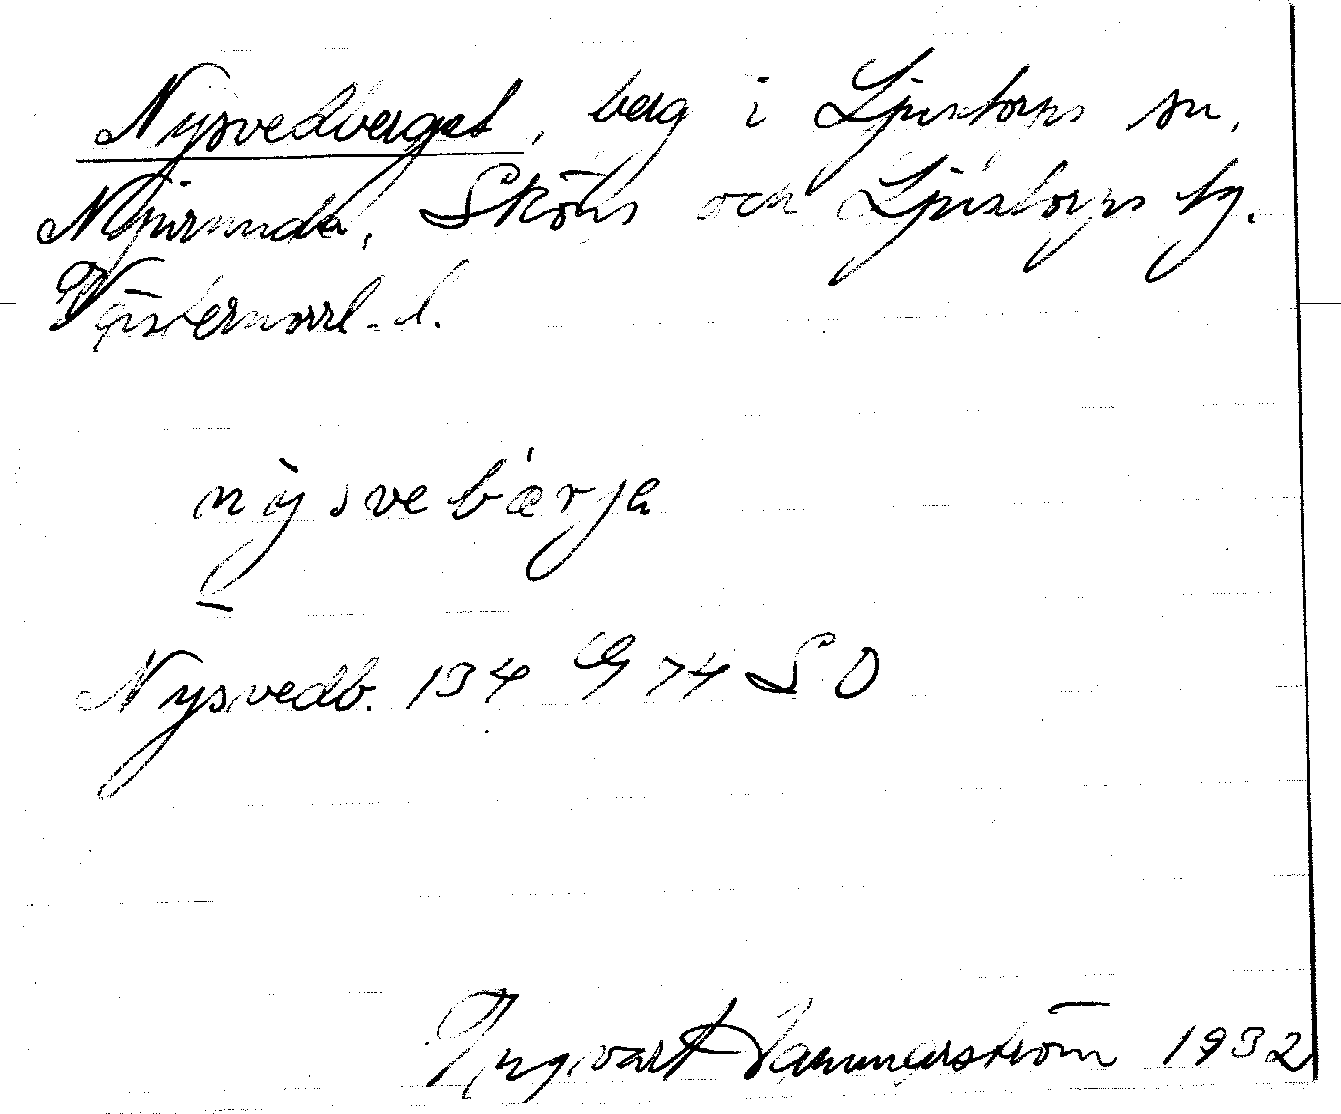 Nysvedberget, berg i Ljustorps sn,
Njurunda, Sköns och Ljustorps tg.
Västernorrl. l.
nỳsvebærja
Nysvedb. 134 G 74 SO
Ingvart Hammarström 1932